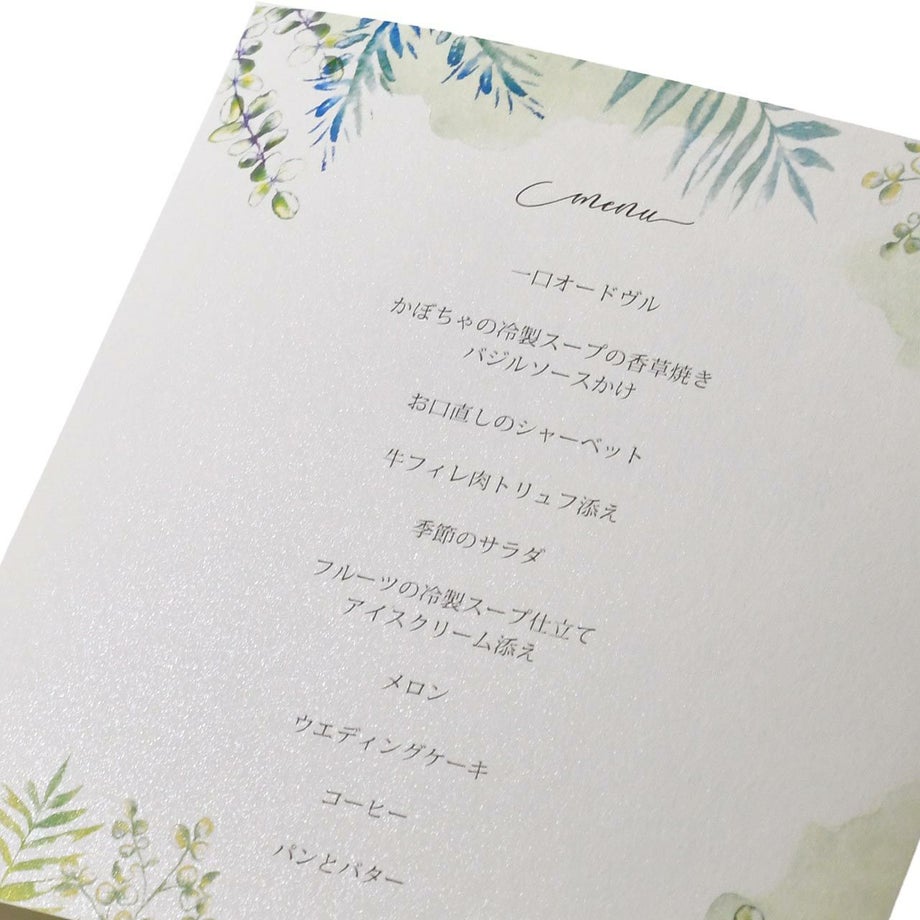 menu
一口オードヴル
かぼちゃの冷製スープの香草焼き
バジルソースかけ
お口直しのシャーベット
牛フィレ肉トリュフ添え
季節のサラダ
フルーツの冷製スープ仕立て
アイスクリーム添え
メロン
ウエディングケーキ
コーヒー
パンとバター